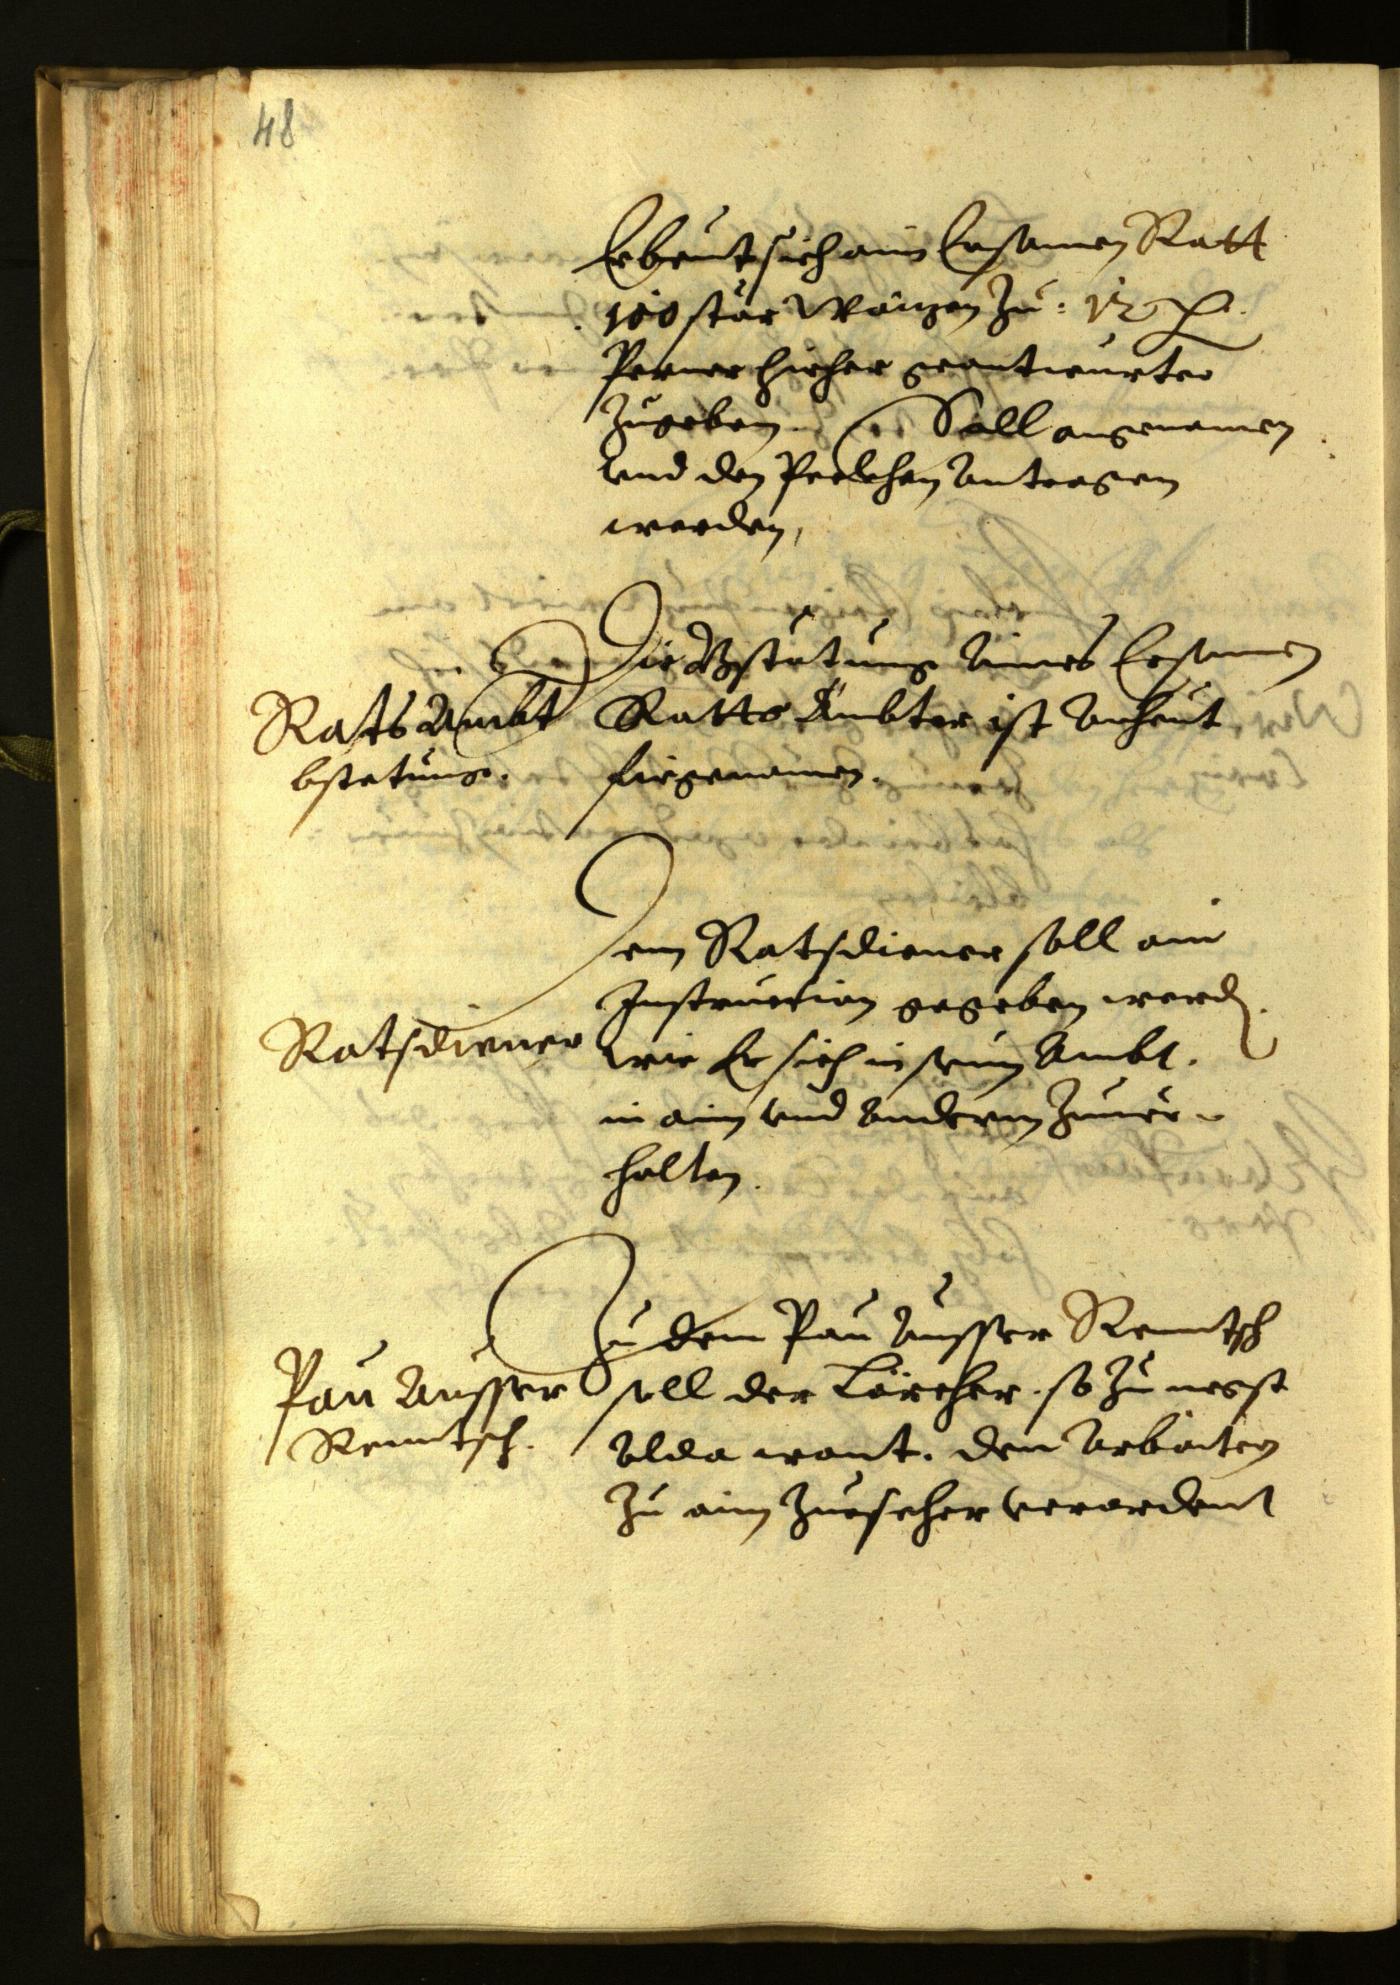 48
Erbeut sich aim Ersamen Ratt
100 stär Waitzen zu: 12 ℔
Perner hieher geantwurter
zugeben. Soll angenomen
und den Peckhen antragen
werden,
Die Bstätung aines Ersamen
Ratts Ämbter ist anheut
firgenomen.
Rats Ambt
bstetung.
Dem Ratsdiener soll ain
Instruction gegeben werd
wie Er sich in seim Ambt.
in aim und anderm zuver-
halten.
Ratsdiener
Zu dem Pau ausser Rentsch
soll der Lärcher. so zu negst
alda wont. den Arbaitern
zu aim zuesecher verordent
Pau ausser
Rentsch.